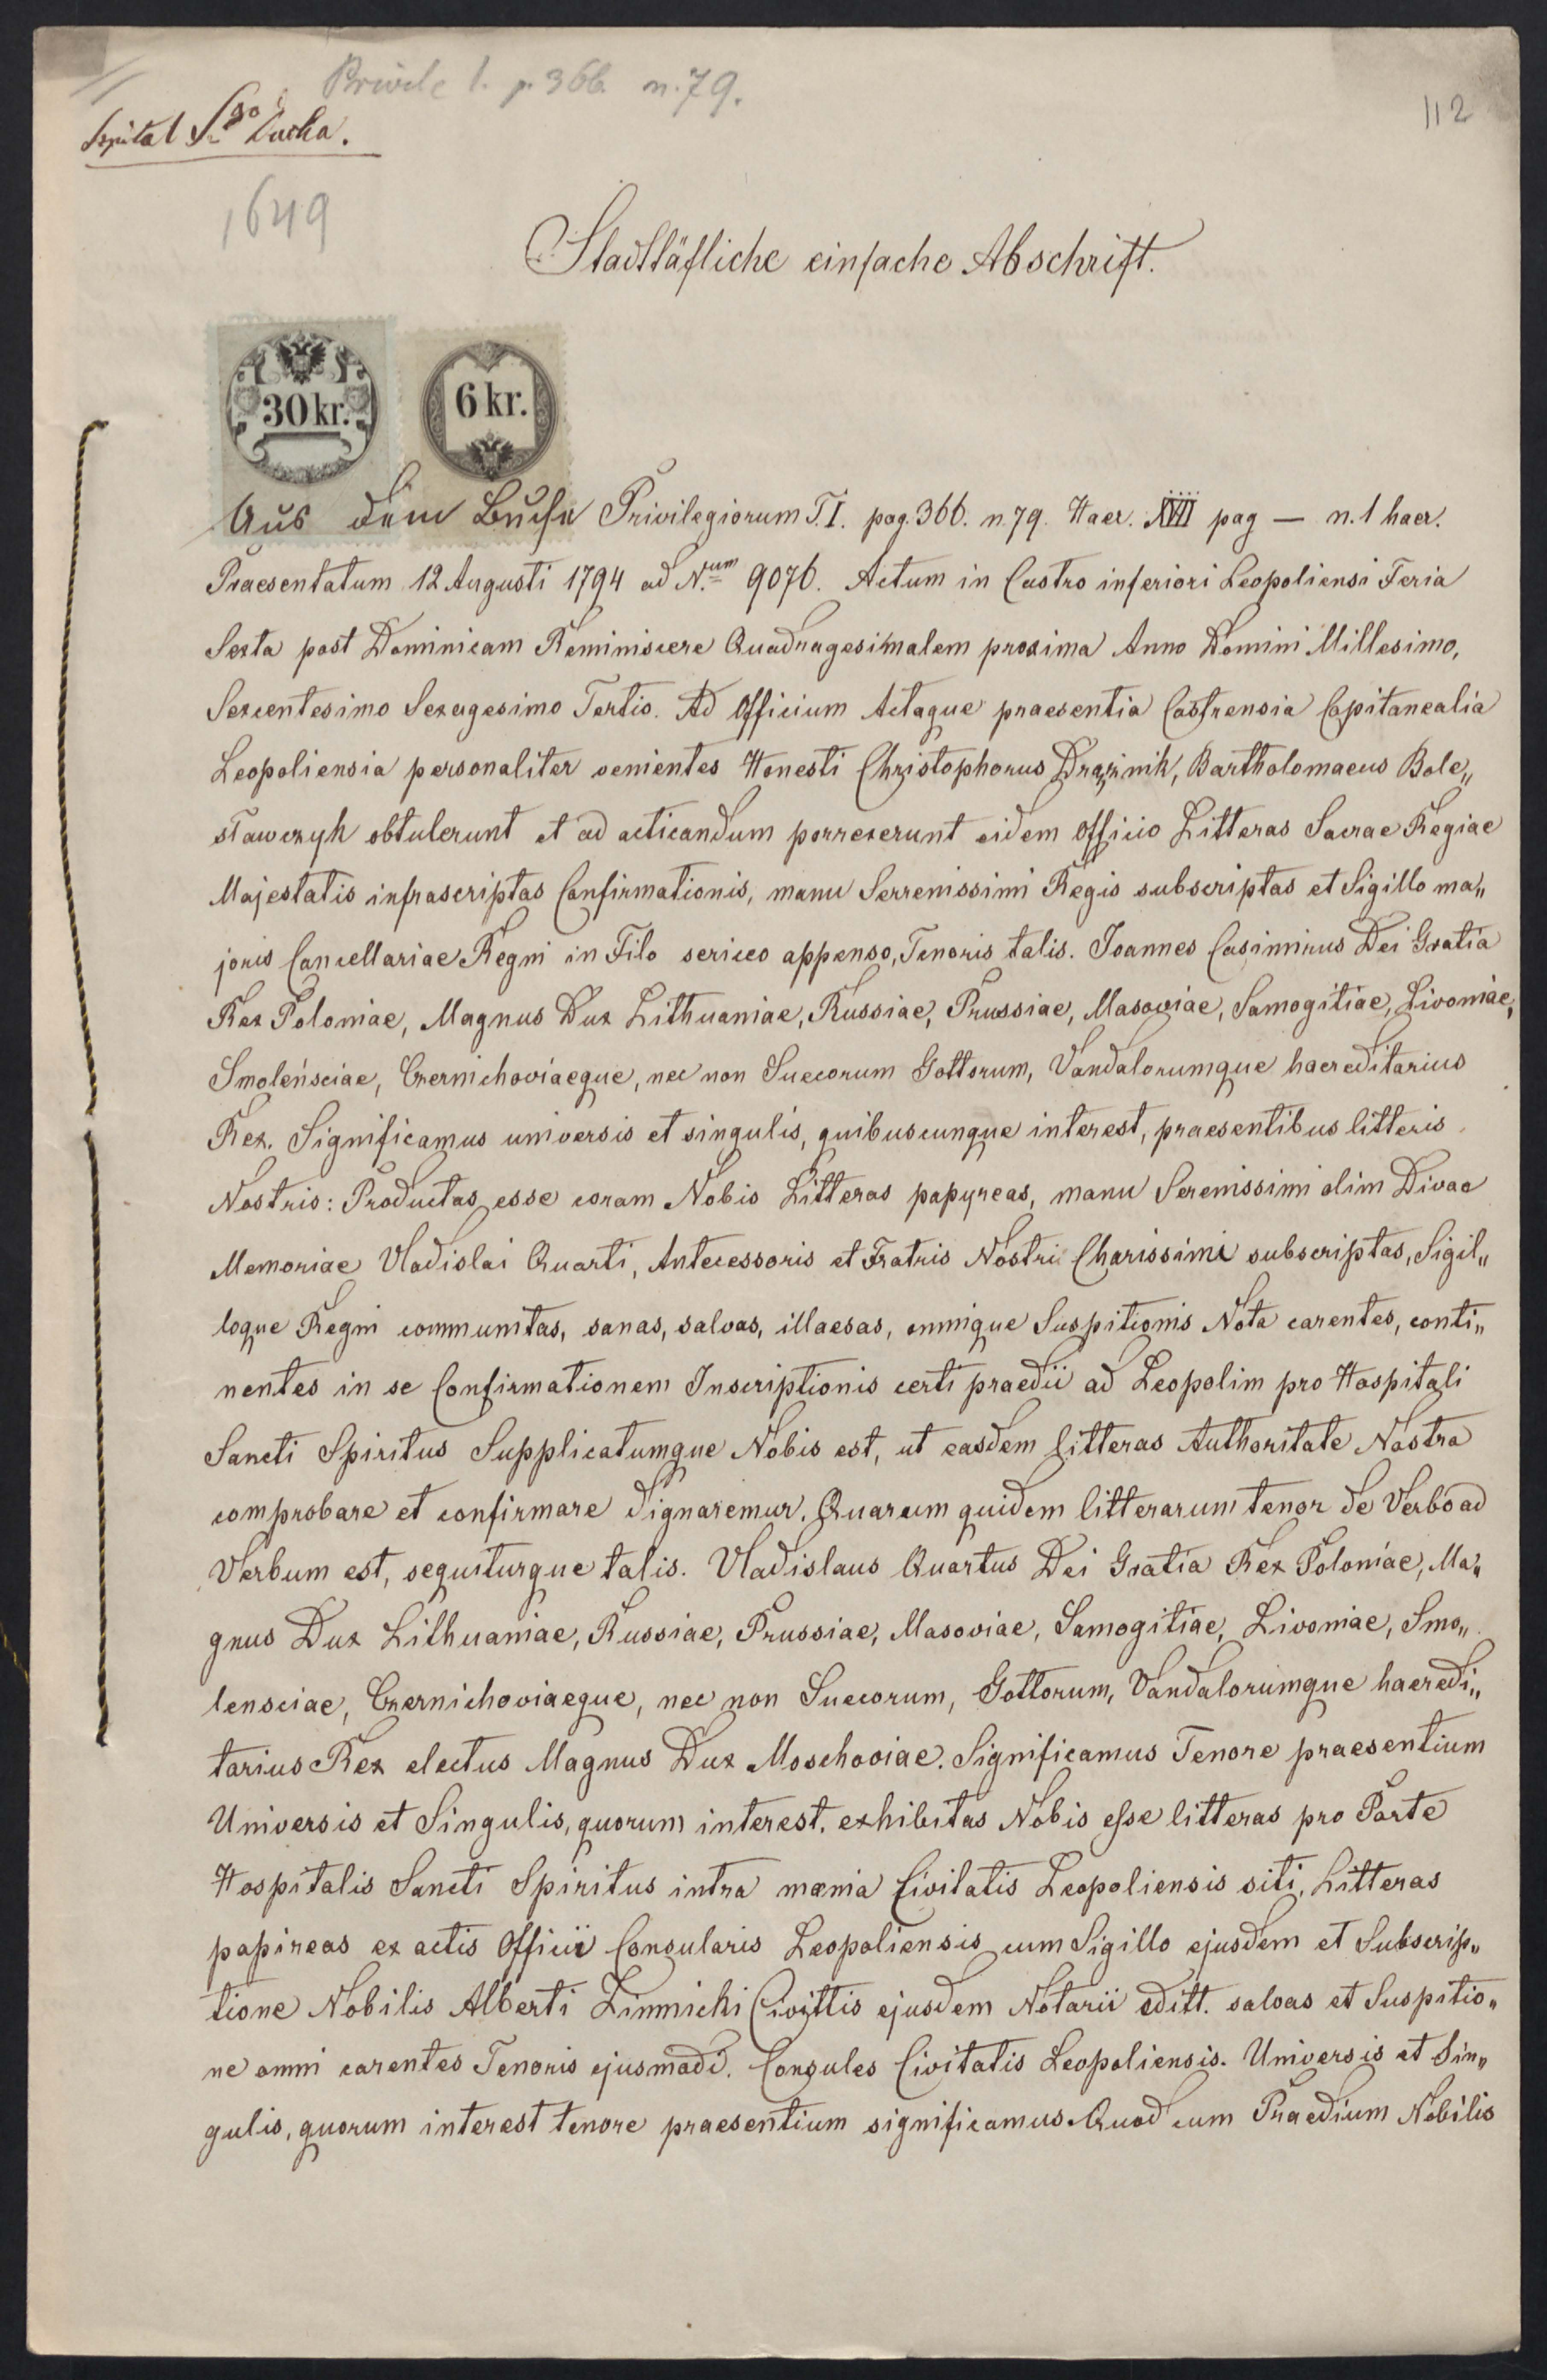 Privile 1. p. 366 n. 79.
112
Szpital Sgo Ducha.
1649
Stadttäfliche einfache Abschrift.
30 kr.
6 kr.
Aus dem Buche Privilegiorum T. I. pag. 366. n. 79. Haer. XVII pag — n. 1 haer.
Praesentatum 12 Augusti 1794 ad N.um 9076. Actum in Castro inferiori Leopoliensi Feria
Sexta post Dominicam Reminiscere Quadragesimalem proxima Anno Domini Millesimo,
Sexcentesimo Sexagesimo Tertio. Ad Officium Actaque praesentia Castrensia Capitanealia
Leopoliensia personaliter venientes Honesti Christophorus Drąźnik, Bartholomaeus Bole„
sławczyk obtulerunt et ad acticandum porrexerunt eidem Officio Litteras Sacrae Regiae
Majestatis infrascriptas Confirmationis, manu Serrenissimi Regis subscriptas et Sigillo ma„
joris Cancellariae Regni in Filo sericeo appenso, Tenoris talis. Joannes Casimirus Dei Gratia
Rex Poloniae, Magnus Dux Lithuaniae, Russiae, Prussiae, Masoviae, Samogitiae, Livoniae,
Smoleńsciae, Czernichoviaeque, nec non Suecorum Gottorum, Vandalorumque haereditarius
Rex. Significamus universis et singulis, quibuscunque interest, praesentibus litteris
Nostris: Productas esse coram Nobis Litteras papyreas, manu Serenissimi olim Divae
Memoriae Vladislai Quarti, Antecessoris et Fratris Nostri Charissimi subscriptas, Sigil„
loque Regni communitas, sanas, salvas, illaesas, omnique Suspitionis Nota carentes, conti„
nentes in se Confirmationem Inscriptionis certi praedii ad Leopolim pro Hospitali
Sancti Spiritus Supplicatumque Nobis est, ut easdem litteras Authoritate Nostra
comprobare et confirmare dignaremur. Quarum quidem litterarum tenor de Verbo ad
Verbum est, sequiturque talis. Vladislaus Quartus Dei Gratia Rex Poloniae, Ma„
gnus Dux Lithuaniae, Russiae, Prussiae, Masoviae, Samogitiae, Livoniae, Smo„
lensciae, Czernichoviaeque, nec non Suecorum, Gottorum, Vandalorumque haeredi„
tarius Rex electus Magnus Dux Moschoviae. Significamus Tenore praesentium
Universis et Singulis, quorum interest, exhibitas Nobis esse litteras pro Parte
Hospitalis Sancti Spiritus intra mœnia Civitatis Leopoliensis siti, Litteras
papireas ex actis Officii Consularis Leopoliensis cum Sigillo ejusdem et Subscrip„
tione Nobilis Alberti Zimnicki Civittis ejusdem Notarii editt. salvas et Suspitio„
ne omni carentes Tenoris ejusmodi. Consules Civitatis Leopoliensis. Universis et Sin„
gulis, quorum interest tenore praesentium significamus Quod cum Praedium Nobilis